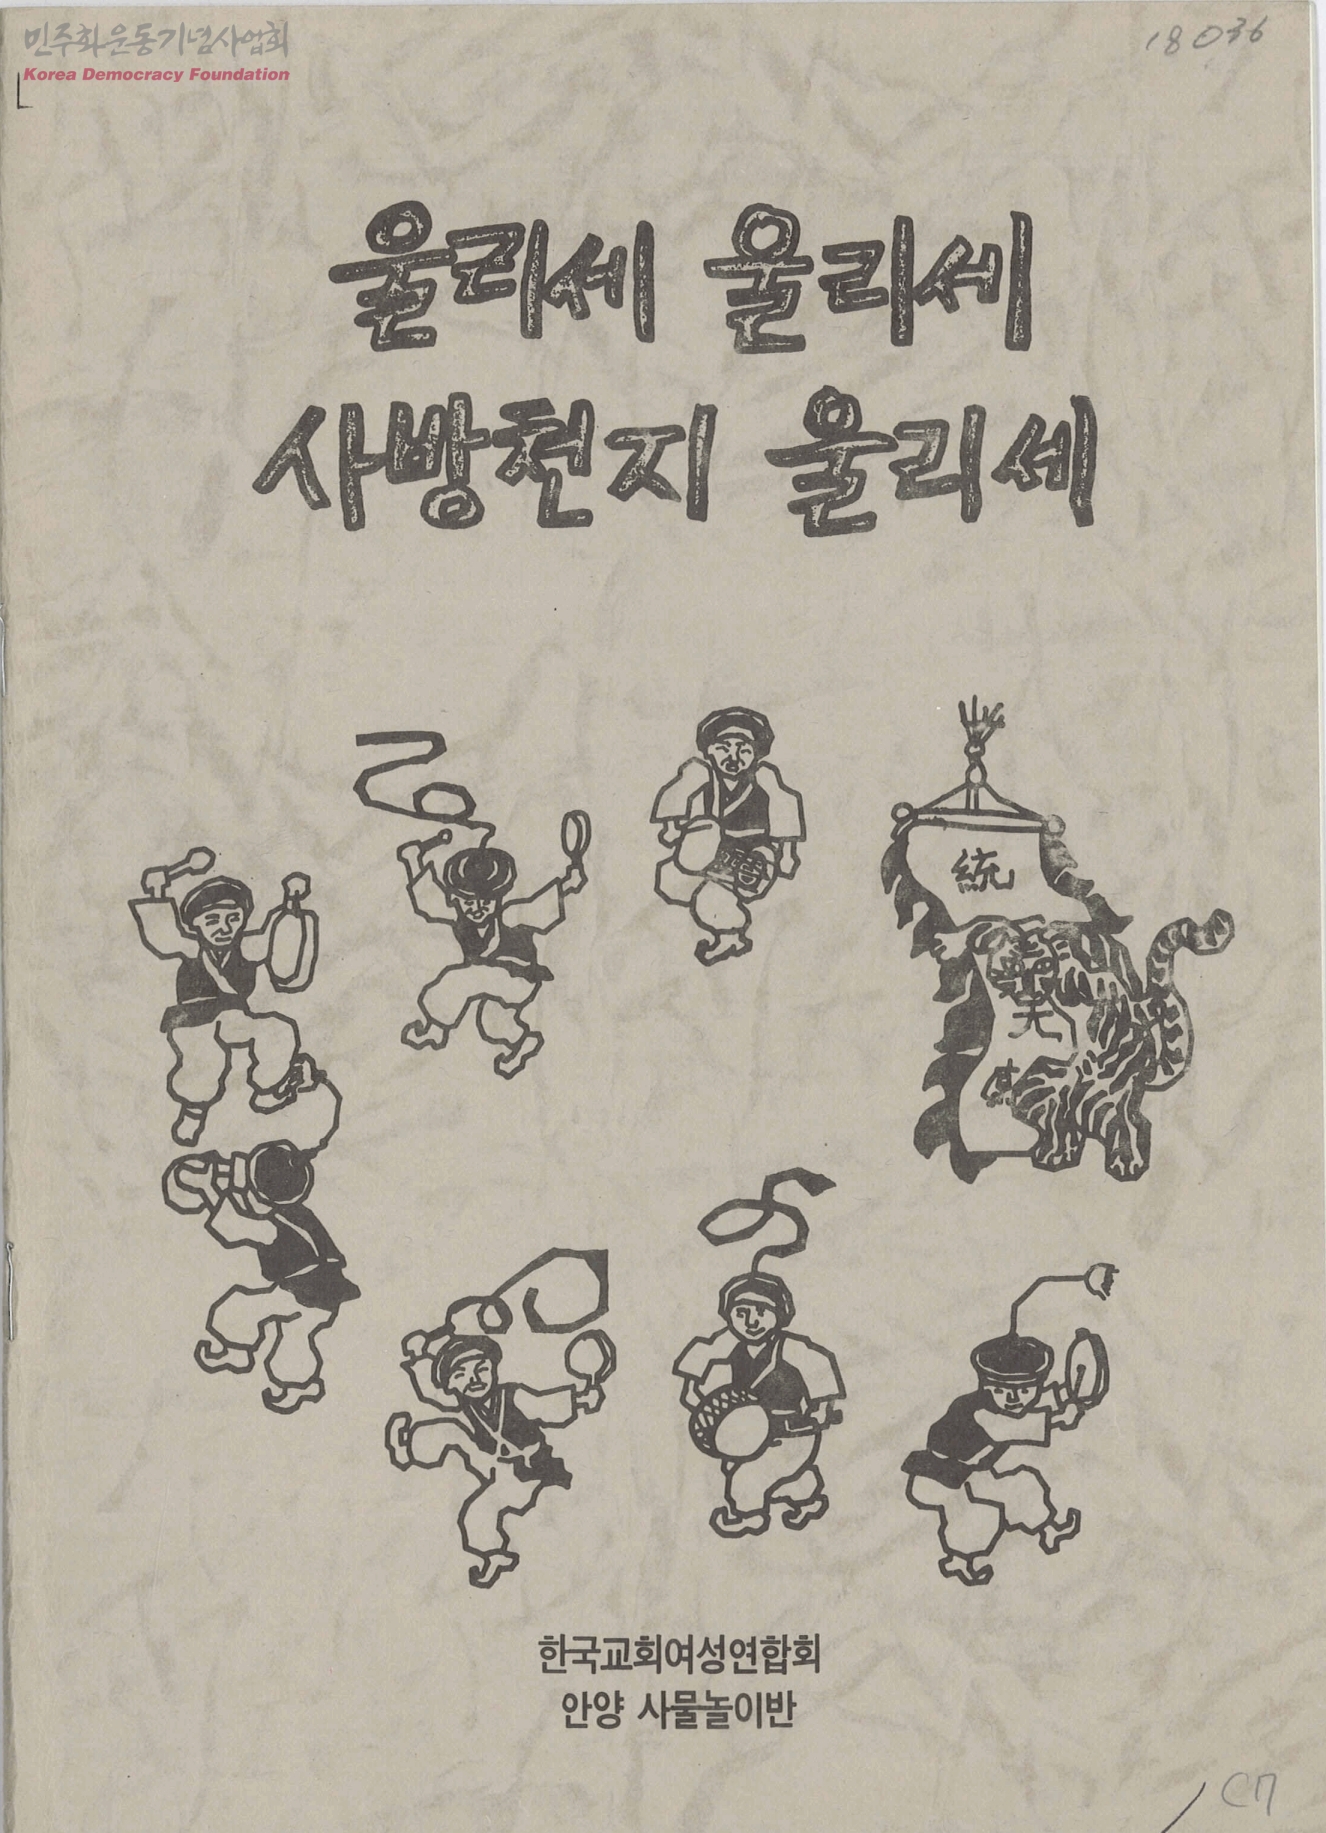 민주화운동기념사업회
Korea Democracy Foundation
18036
울리세 울리세
사방천지 울리세
統
天
한국교회여성연합회
안양 사물놀이반